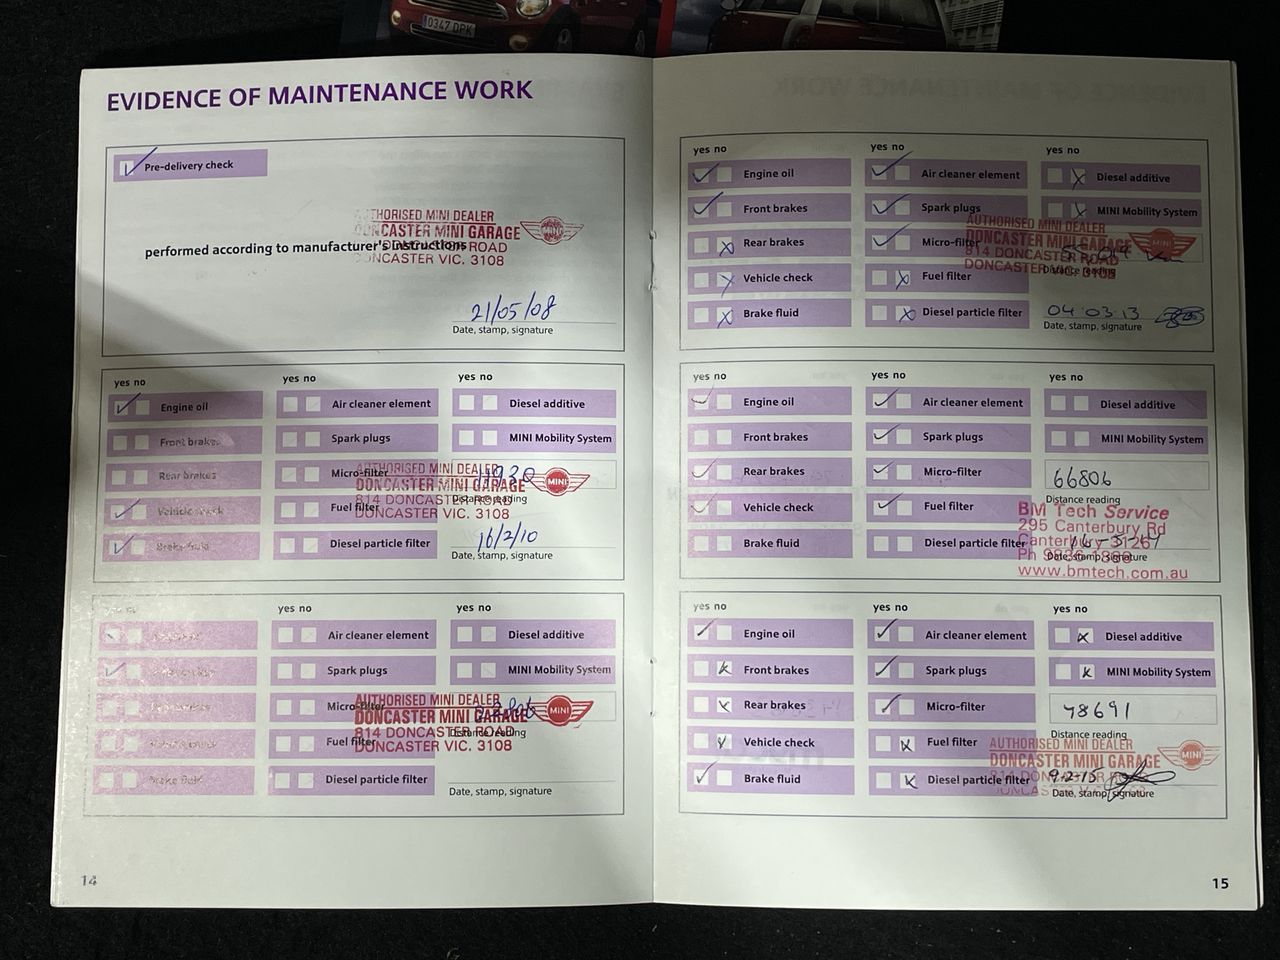 0347 DPK
EVIDENCE OF MAINTENANCE WORK
Pre-delivery check
AUTHORISED MINI DEALER
DONCASTER MINI GARAGE
MINI
performed according to manufacturer's instructions
DONCASTER ROAD
DONCASTER VIC. 3108
21/05/08
Date, stamp, signature
yes no yes no yes no
Engine oil Air cleaner element Diesel additive
Front brakes Spark plugs MINI Mobility System
Rear brakes Micro-filter
AUTHORISED MINI DEALER
DONCASTER MINI GARAGE
MINI
Distance reading
814 DONCASTER ROAD
Vehicle check Fuel filter
DONCASTER VIC. 3108
Brake fluid Diesel particle filter
16/2/10
Date, stamp, signature
yes no yes no
Air cleaner element Diesel additive
Spark plugs MINI Mobility System
Micro-filter
AUTHORISED MINI DEALER
DONCASTER MINI GARAGE
MINI
Distance reading
814 DONCASTER ROAD
Vehicle check Fuel filter
DONCASTER VIC. 3108
Brake fluid Diesel particle filter
Date, stamp, signature
14
yes no yes no yes no
Engine oil Air cleaner element Diesel additive
Front brakes Spark plugs MINI Mobility System
AUTHORISED MINI DEALER
Rear brakes Micro-filter
DONCASTER MINI GARAGE
MINI
814 DONCASTER ROAD
Distance reading
DONCASTER VIC. 3108
Vehicle check Fuel filter
Brake fluid Diesel particle filter
04 03 13
Date, stamp, signature
yes no yes no yes no
Engine oil Air cleaner element Diesel additive
Front brakes Spark plugs MINI Mobility System
Rear brakes Micro-filter
66806
Distance reading
Vehicle check Fuel filter
BM Tech Service
295 Canterbury Rd
Brake fluid Diesel particle filter
Canterbury 3126
Date, stamp, signature
www.bmtech.com.au
yes no yes no yes no
Engine oil Air cleaner element Diesel additive
Front brakes Spark plugs MINI Mobility System
Rear brakes Micro-filter
78691
Distance reading
Vehicle check Fuel filter
AUTHORISED MINI DEALER
DONCASTER MINI GARAGE
MINI
Brake fluid Diesel particle filter
9-2-15
Date, stamp, signature
15